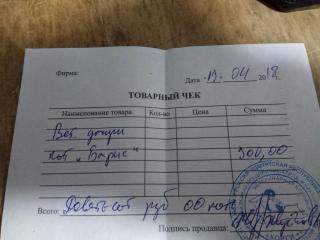 Фирма:
Дата „19" 04 2018 г.
ТОВАРНЫЙ ЧЕК
Наименование товара Кол-во Цена Сумма
Вет
кот „Барис" 900,00
Всего: Девятьсот руб 00 коп
Подпись продавца: